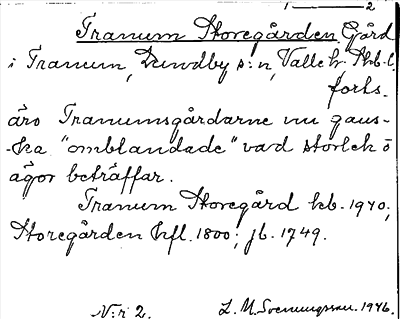 1 — 2
Tranum Storegården Gård
i Tranum, Sundby s:n, Valle hr. Skb. l.
forts.
äro Tranumsgårdarne nu gans-
-ka "omblandade" vad storlek o
ägor beträffar.
Tranum Storegård kb. 1940;
Storegården hfl. 1800; jb. 1749.
N:r 2. L. M. Svenungsson. 1946.